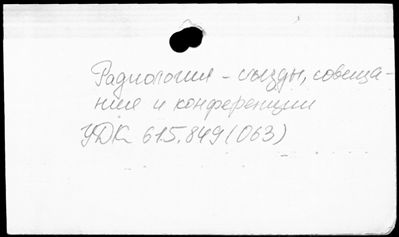 Радиология – съезды, совеща-
ния и конференции
УДК 615.849(063)